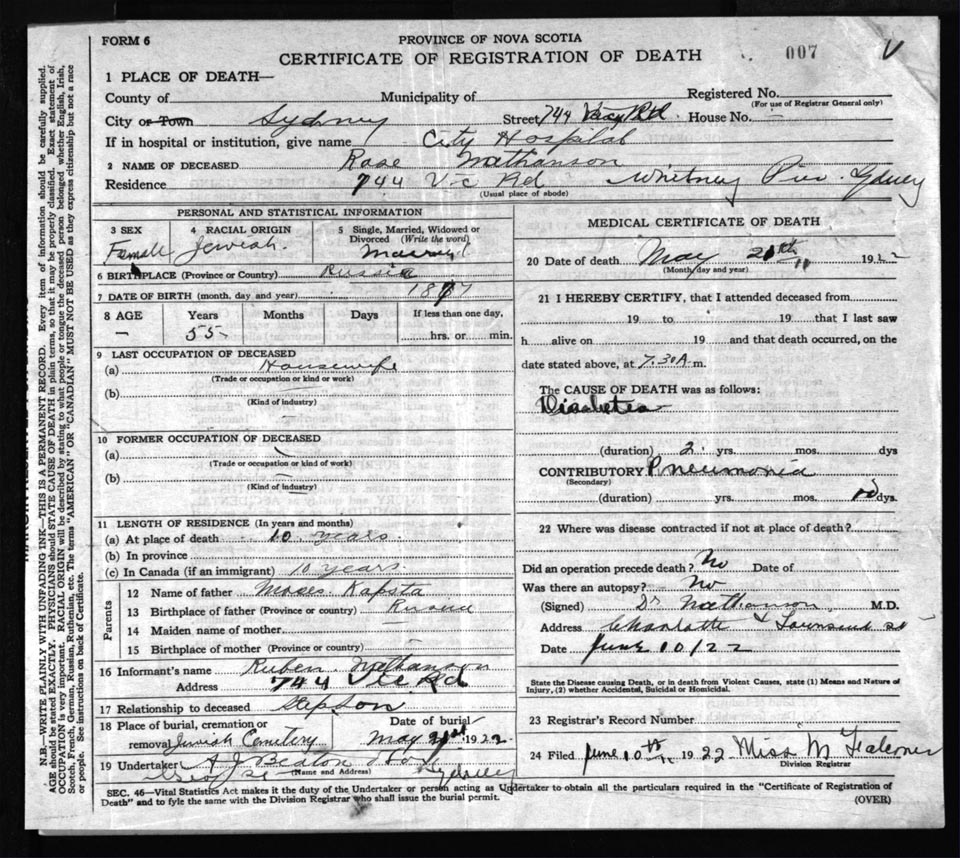 FORM 6
PROVINCE OF NOVA SCOTIA
CERTIFICATE OF REGISTRATION OF DEATH
007
1 PLACE OF DEATH—
County of Municipality of Registered No.
(For use of Registrar General only)
City or Town Sydney Street 744 Vic Rd House No. —
If in hospital or institution, give name City Hospital
2 NAME OF DECEASED Rose Nathanson
Residence 744 Vic Rd Whitney Pier Sydney
(Usual place of abode)
PERSONAL AND STATISTICAL INFORMATION
3 SEX Female
4 RACIAL ORIGIN Jewish.
5 Single, Married, Widowed or Divorced (Write the word)
6 BIRTHPLACE (Province or Country) Russia
7 DATE OF BIRTH (month, day and year)
8 AGE Years Months Days If less than one day,
— 55 hrs. or min.
9 LAST OCCUPATION OF DECEASED
(a) Housewife
(Trade or occupation or kind or work)
(b)
(Kind of industry)
10 FORMER OCCUPATION OF DECEASED
(a)
(Trade or occupation or kind of work)
(b)
(Kind of industry)
11 LENGTH OF RESIDENCE (In years and months)
(a) At place of death 10 years
(b) In province
(c) In Canada (if an immigrant) 10 years
Parents
12 Name of father Moses Kapsta
13 Birthplace of father (Province or country) Russia
14 Maiden name of mother —
15 Birthplace of mother (Province or country) —
16 Informant's name Ruben Nathanson
Address 744 Vic Rd
17 Relationship to deceased Stepson
18 Place of burial, cremation or Date of burial
removal Jewish Cemetery May 21st 1922
19 Undertaker A J Beaton
(Name and Address)
George St Sydney
MEDICAL CERTIFICATE OF DEATH
20 Date of death May 20th 1922
(Month day and year)
21 I HEREBY CERTIFY, that I attended deceased from
19 to 19 that I last saw
h alive on 19 and that death occurred, on the
date stated above, at 7.30 A m.
The CAUSE OF DEATH was as follows:
Diabetes
(duration) 2 yrs. mos. dys
CONTRIBUTORY Pneumonia
(Secondary)
(duration) yrs. mos. 10 dys.
22 Where was disease contracted if not at place of death?
Did an operation precede death? No Date of
Was there an autopsy? No
(Signed) Dr Nathanson M.D.
Address Charlotte & Townsend St
Date June 10/22
State the Disease causing Death, or in death from Violent Causes, state (1) Means and Nature of
Injury, (2) whether Accidental, Suicidal or Homicidal.
23 Registrar's Record Number
24 Filed June 10th 1922 Miss M Falconer
Division Registrar
SEC. 46—Vital Statistics Act makes it duty of the Undertaker or person acting as Undertaker to obtain all the particulars required in the "Certificate of Registration of
Death" and to fyle the same with the Division Registrar who shall issue the burial permit.
(OVER)
N.B.—WRITE PLAINLY WITH UNFADING INK—THIS IS A PERMANENT RECORD. Every item of information should be carefully supplied.
AGE should be stated EXACTLY. PHYSICIANS should STATE CAUSE OF DEATH in plain terms, so that it may be properly classified. Exact statement of
OCCUPATION is very important. RACIAL ORIGIN will be described by stating to what people or tongue the deceased person belonged whether English, Irish,
Scotch, French, German, Russian, Ruthenian, etc. The terms "AMERICAN" OR "CANADIAN" MUST NOT BE USED as they express citizenship but not a race
or people. See instructions on back of Certificate.